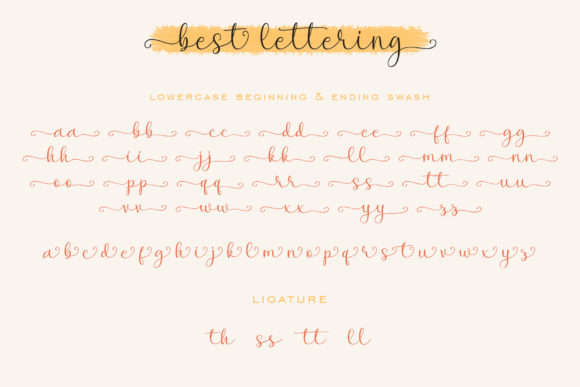 best lettering
LOWERCASE BEGINNING & ENDING SWASH
aa bb cc dd ee ff gg
hh ii jj kk ll mm nn
oo pp qq rr ss tt uu
vv ww xx yy zz
a b c d e f g h i j k l m n o p q r s t u v w x y z
LIGATURE
th ss tt ll